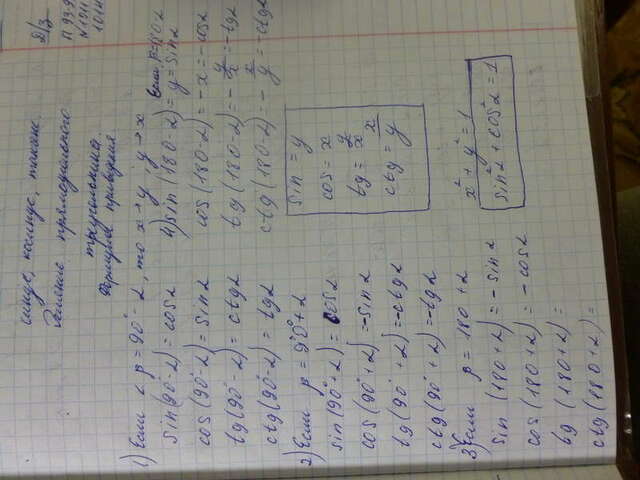 синус, косинус, тангенс
Решение прямоугольного
треугольника
Формулы приведения
Д/з
1) Если < β = 90° - α, то x → y, y → x
sin(90° - α) = cos α
cos(90° - α) = sin α
tg(90° - α) = ctg α
ctg(90° - α) = tg α
2) Если β = 90° + α
sin(90° + α) = cos α
cos(90° + α) = -sin α
tg(90° + α) = -ctg α
ctg(90° + α) = -tg α
3) Если β = 180 + α
sin(180 + α) = -sin α
cos(180 + α) = -cos α
tg(180 + α) =
ctg(180 + α) =
4) sin(180 - α) = y = sin α
cos(180 - α) = -x = -cos α
tg(180 - α) = -y/x = -tg α
ctg(180 - α) = -x/y = -ctg α
sin = y
cos = x
tg = y/x
ctg = x/y
x² + y² = 1
sin² α + cos² α = 1